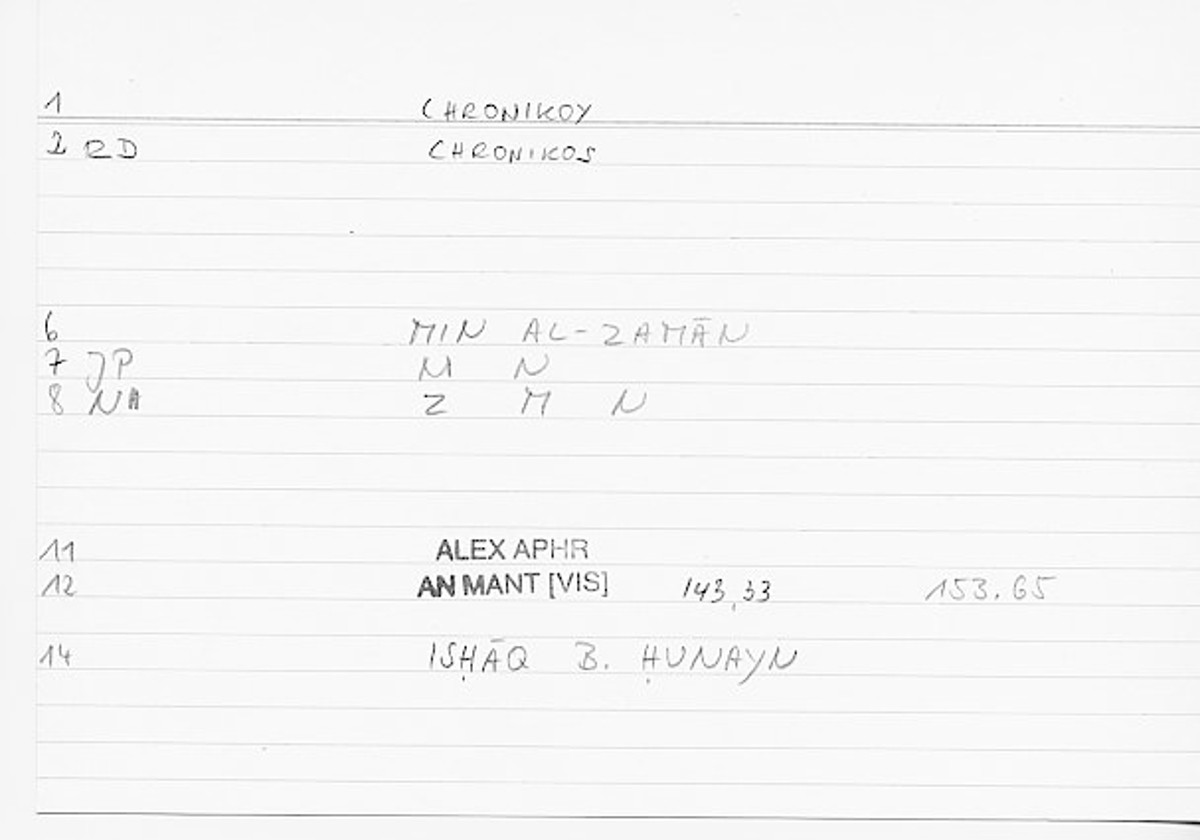 1 CHRONIKOY
2 RD CHRONIKOS
6 MIN AL-ZAMĀN
7 JP M N
8 NA Z M N
11 ALEX APHR
12 AN MANT [VIS] 143,33 153.65
14 ISḤĀQ B. ḤUNAYN